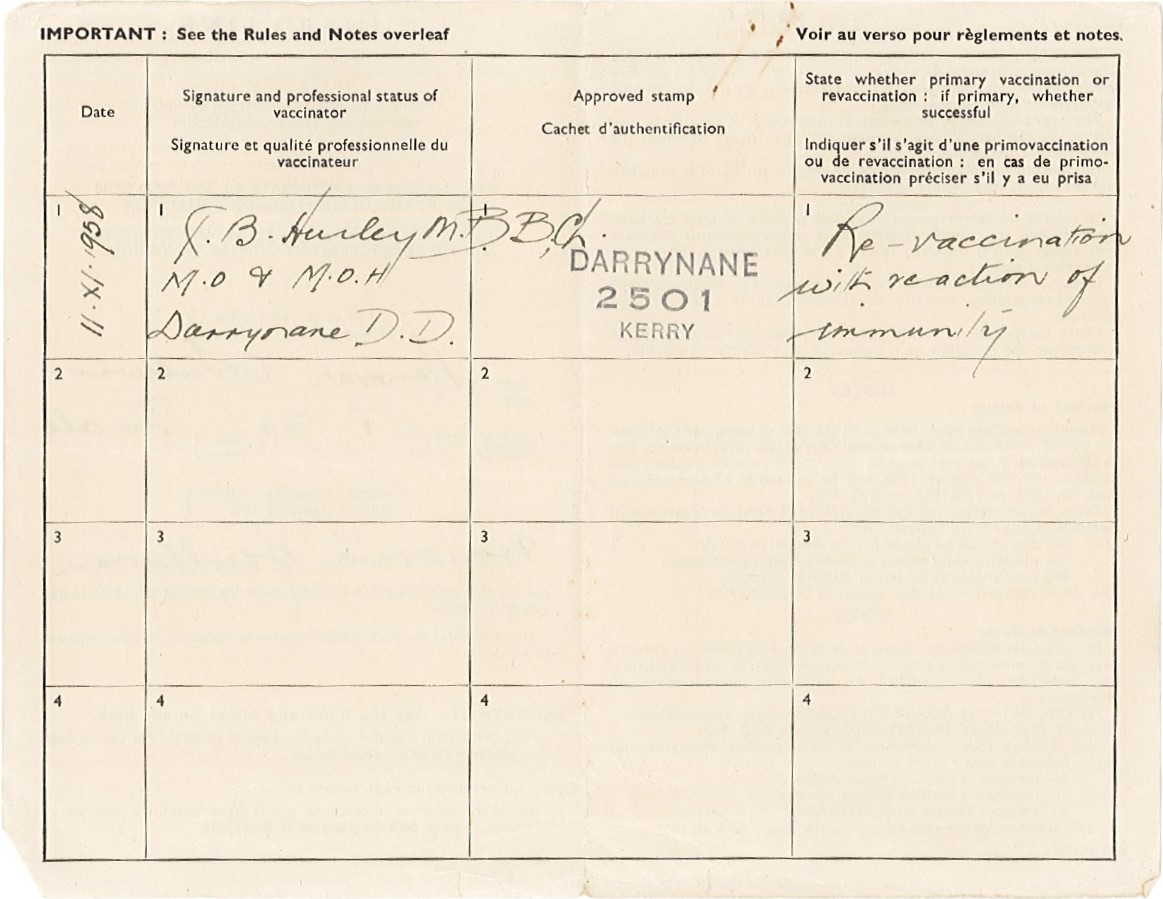 IMPORTANT : See the Rules and Notes overleaf
Voir au verso pour règlements et notes.
Date
Signature and professional status of
vaccinator
Signature et qualité professionnelle du
vaccinateur
Approved stamp
Cachet d'authentification
State whether primary vaccination or
revaccination : if primary, whether
successful
Indiquer s'il s'agit d'une primovaccination
ou de revaccination : en cas de primo-
vaccination préciser s'il y a eu prisa
1
11·XI·1958
1
B. Hurley M.B B,Ch.
M.O & M.O.H
Darrynane D.D.
1
DARRYNANE
2501
KERRY
1
Re-vaccination
with reaction of
immunity
2
2
2
2
3
3
3
3
4
4
4
4